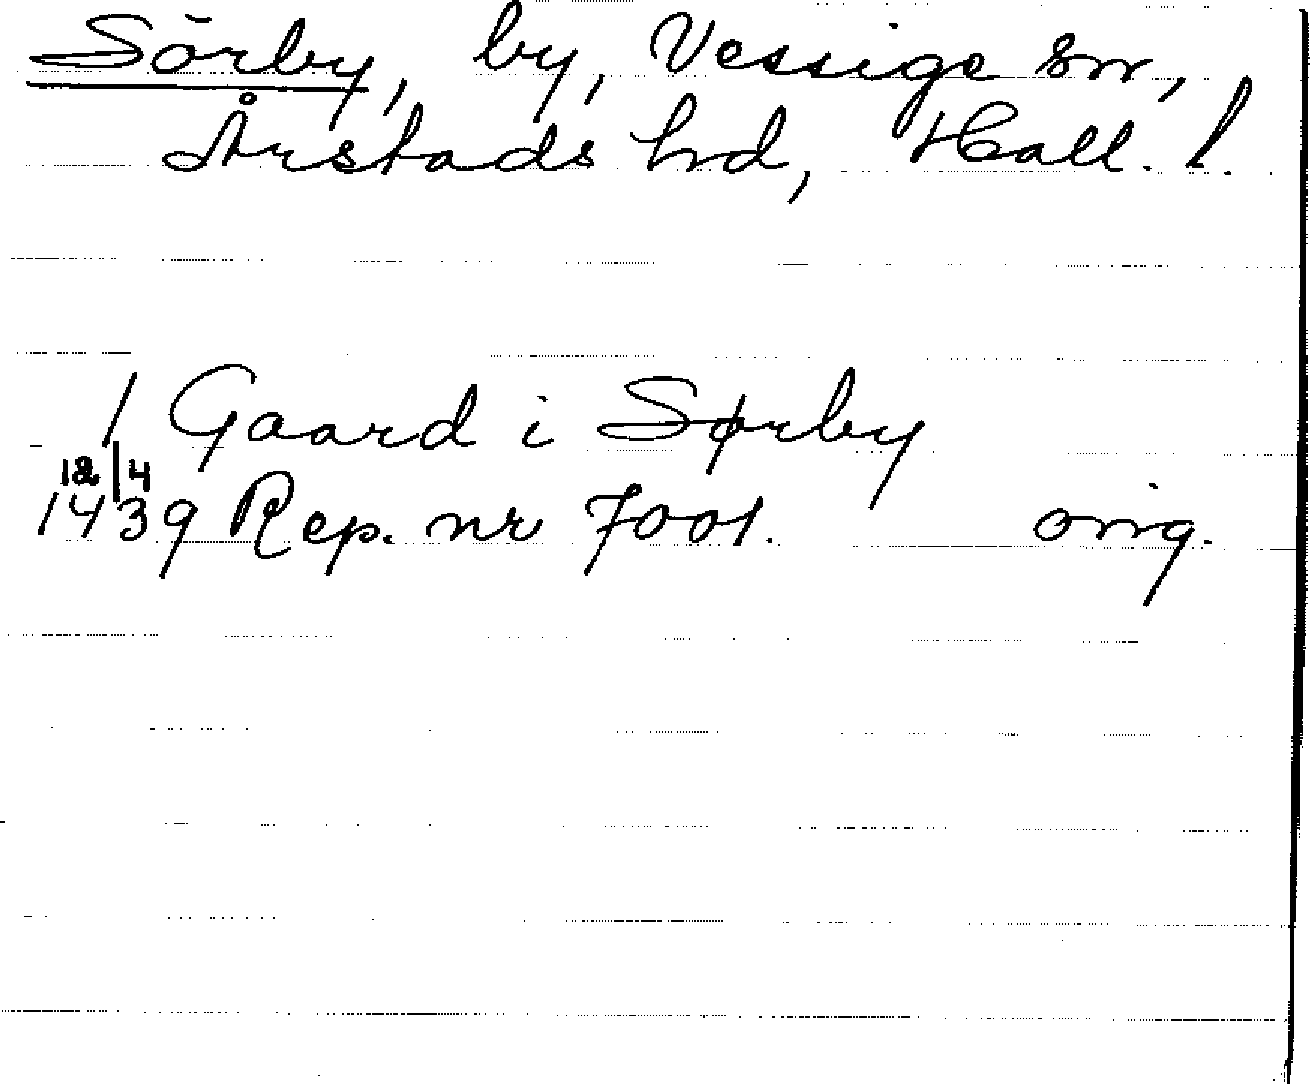 Sörby, by, Vessige sn,
Årstads hd, Hall. l.
1 Gaard i Sørby
12/4
1439 Rep. nr 7001. orig.